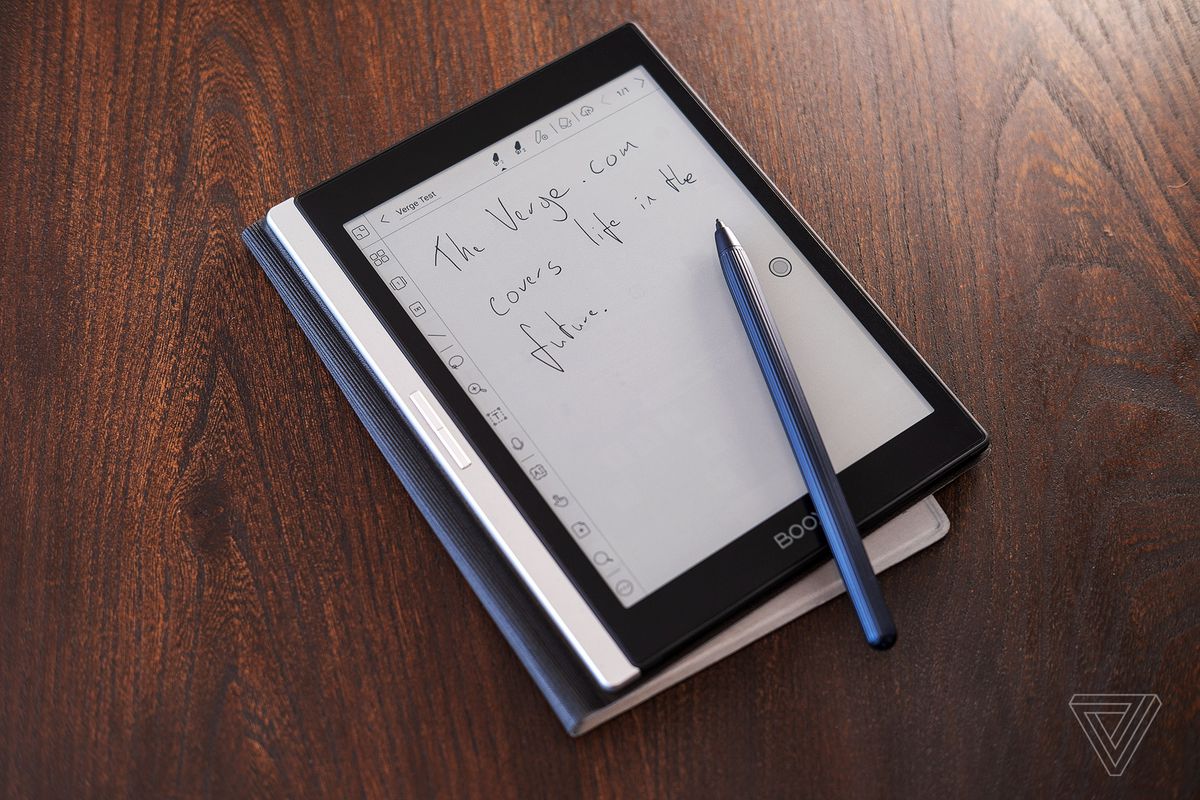 Verge Test
1/1
The Verge.com
covers life in the
future.
BOO